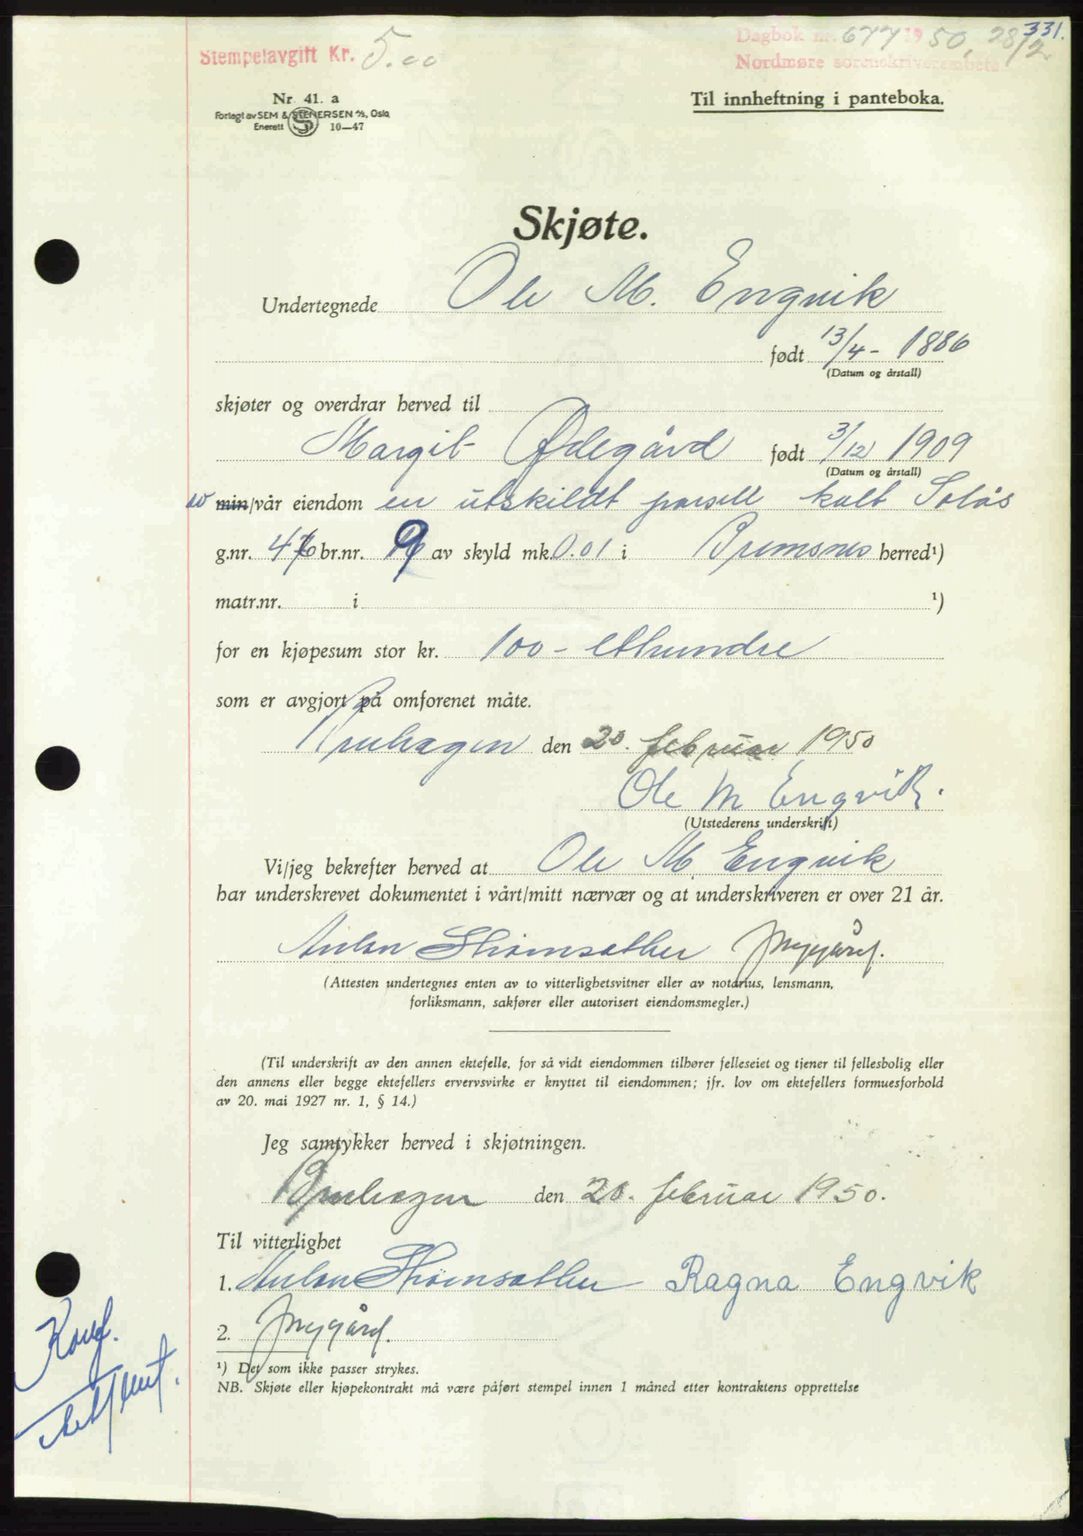 331.
Stempelavgift Kr. 5.00
Dagbok nr. 677 1950, 28/2
Nordmøre sorenskriverembete
Nr. 41. a
Forlagt av SEM & STENERSEN A/S, Oslo
Enerett S 10-47
Til innheftning i panteboka.
Skjøte.
Undertegnede Ole M. Engvik
født 13/4 - 1886
(Datum og årstall)
skjøter og overdrar herved til
Margit Ødegård født 3/12 1909
(Datum og årstall)
av min/vår eiendom en utskildt parsell kalt Solås
g.nr. 46 br.nr. 9 av skyld mk. 0.01 i Bremsnes herred¹)
matr.nr. i ¹)
for en kjøpesum stor kr. 100 - ethundre
som er avgjort på omforenet måte.
Bruhagen den 20. februar 1950
Ole M Engvik.
(Utstederens underskrift)
Vi/jeg bekrefter herved at Ole M. Engvik
har underskrevet dokumentet i vårt/mitt nærvær og at underskriveren er over 21 år.
Anton Strømsæther J Nygård.
(Attesten undertegnes enten av to vitterlighetsvitner eller av notarius, lensmann,
forliksmann, sakfører eller autorisert eiendomsmegler.)
(Til underskrift av den annen ektefelle, for så vidt eiendommen tilhører felleseiet og tjener til fellesbolig eller
den annens eller begge ektefellers ervervsvirke er knyttet til eiendommen; jfr. lov om ektefellers formuesforhold
av 20. mai 1927 nr. 1, § 14.)
Jeg samtykker herved i skjøtningen.
Bruhagen den 20. februar 1950.
Til vitterlighet
1. Anton Strømsæther Ragna Engvik
2. J Nygård.
¹) Det som ikke passer strykes.
NB. Skjøte eller kjøpekontrakt må være påført stempel innen 1 måned etter kontraktens opprettelse
Konf.